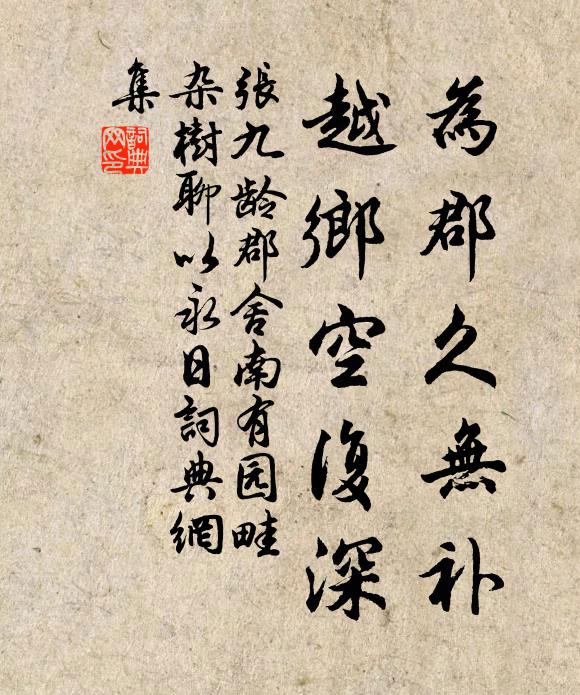 為郡久無补
越鄉空復深
張九龄郡舍南有园畦
杂樹聊以永日詞典網
集
詞典
网印